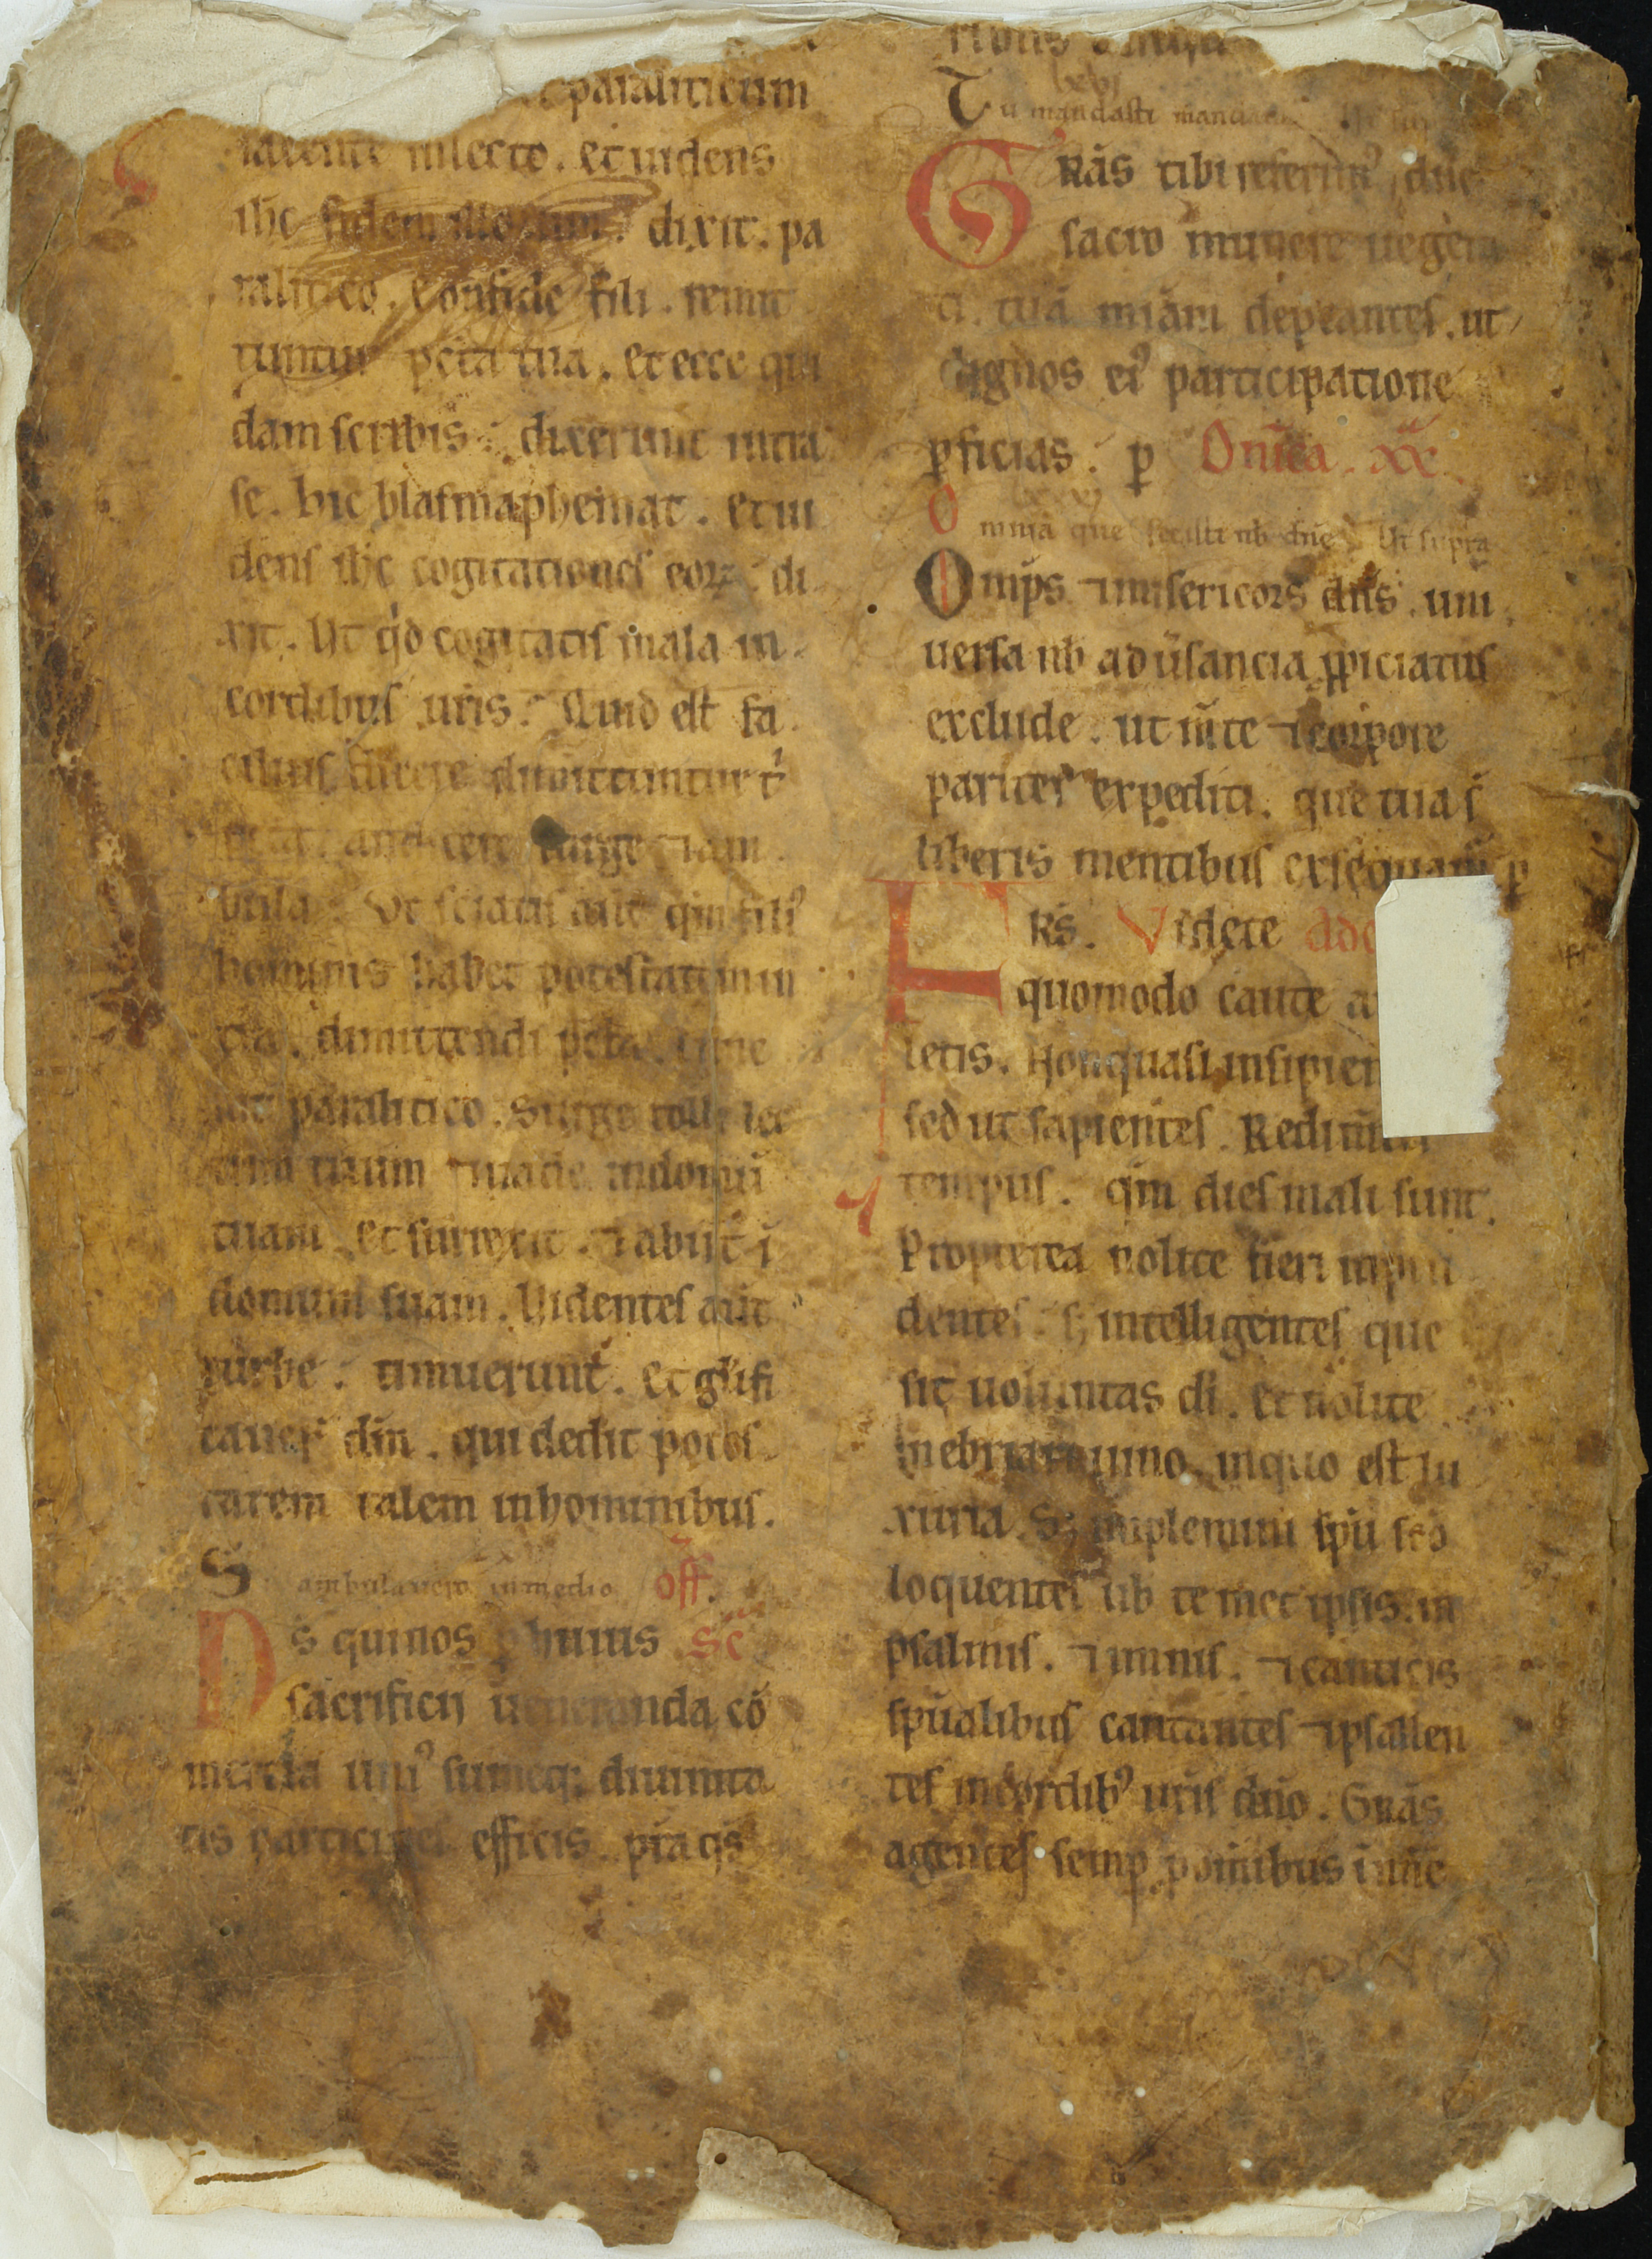 paraliticum
iacente inlecto. et uidens
ihc fidem illorum. dixit. pa
ralitico. Confide fili. remit
tuntur pcta tua. et ecce qui
dam scribis. dixerunt intra
se. hic blasmaphemat. et ui
dens ihc cogitationes eorꝝ. di
xit. Ut qd cogitatis mala in
cordibus uris. Quid est fa
cilius dicere dimittuntur t
surge ⁊ am
bula. Vt sciatis aut qm fili⁹
hominis habet potestatem in
tra. dimittendi pcta. tunc
ait paralitico. Surge tolle lec
tum tuum ⁊ uade indomū
tuam. et surrexit. ⁊ abiit ī
domum suam. Videntes aūt
turbe. timuerunt. et glifi
cauer dm. qui dedit potes
tatem talem inhominibus.
S ambulauero in medio off.
Ds quinos ꝑ huius Sc
sacrificij ueneranda cō
mercia uni⁹ sumeq; diuinita
tis participes efficis. pra qs
Tu mandasti mandata
lxvj
GRās tibi referim⁹ dne
sacro munere uegeta
ti. tuā miām depcantes. ut
dignos ei⁹ participatione
ꝑficias. ꝑ Dnīca. xx
Omnia que fecisti nb dne Ut supra
Omps ⁊ misericors dns. uni
uersa nb aduersancia ꝓpiciatus
exclude. ut mte ⁊ corpore
pariter expediti. que tua s
liberis mentibus exsequam ꝑ
FRS. Videte
quomodo caute
letis. Non quasi insipien
sed ut sapientes. Redim
tempus. qm dies mali sunt.
Propterea nolite fieri inpru
dentes. s; intelligentes que
sit uoluntas di. et nolite
inebriari uino. inquo est lu
xuria. S; implemini spu sco
loquentes ub te met ipsis. in
psalmis. ⁊ imnis. ⁊ canticis
spualibus cantantes ⁊ psallen
tes incordib⁹ uris dno. Grās
agentes semꝑ ꝑ omibus in ne